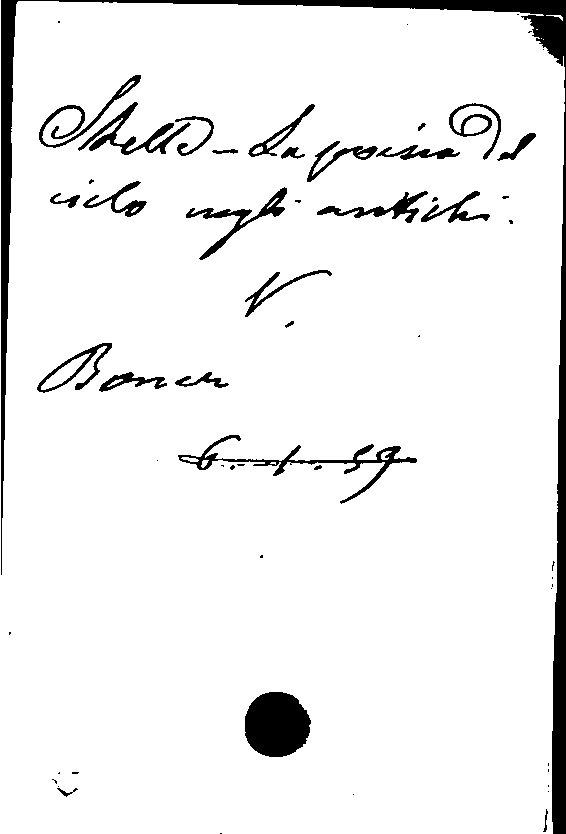 Stelle - La poesia del
cielo negli antichi.
V.
Boner
6.-1.59